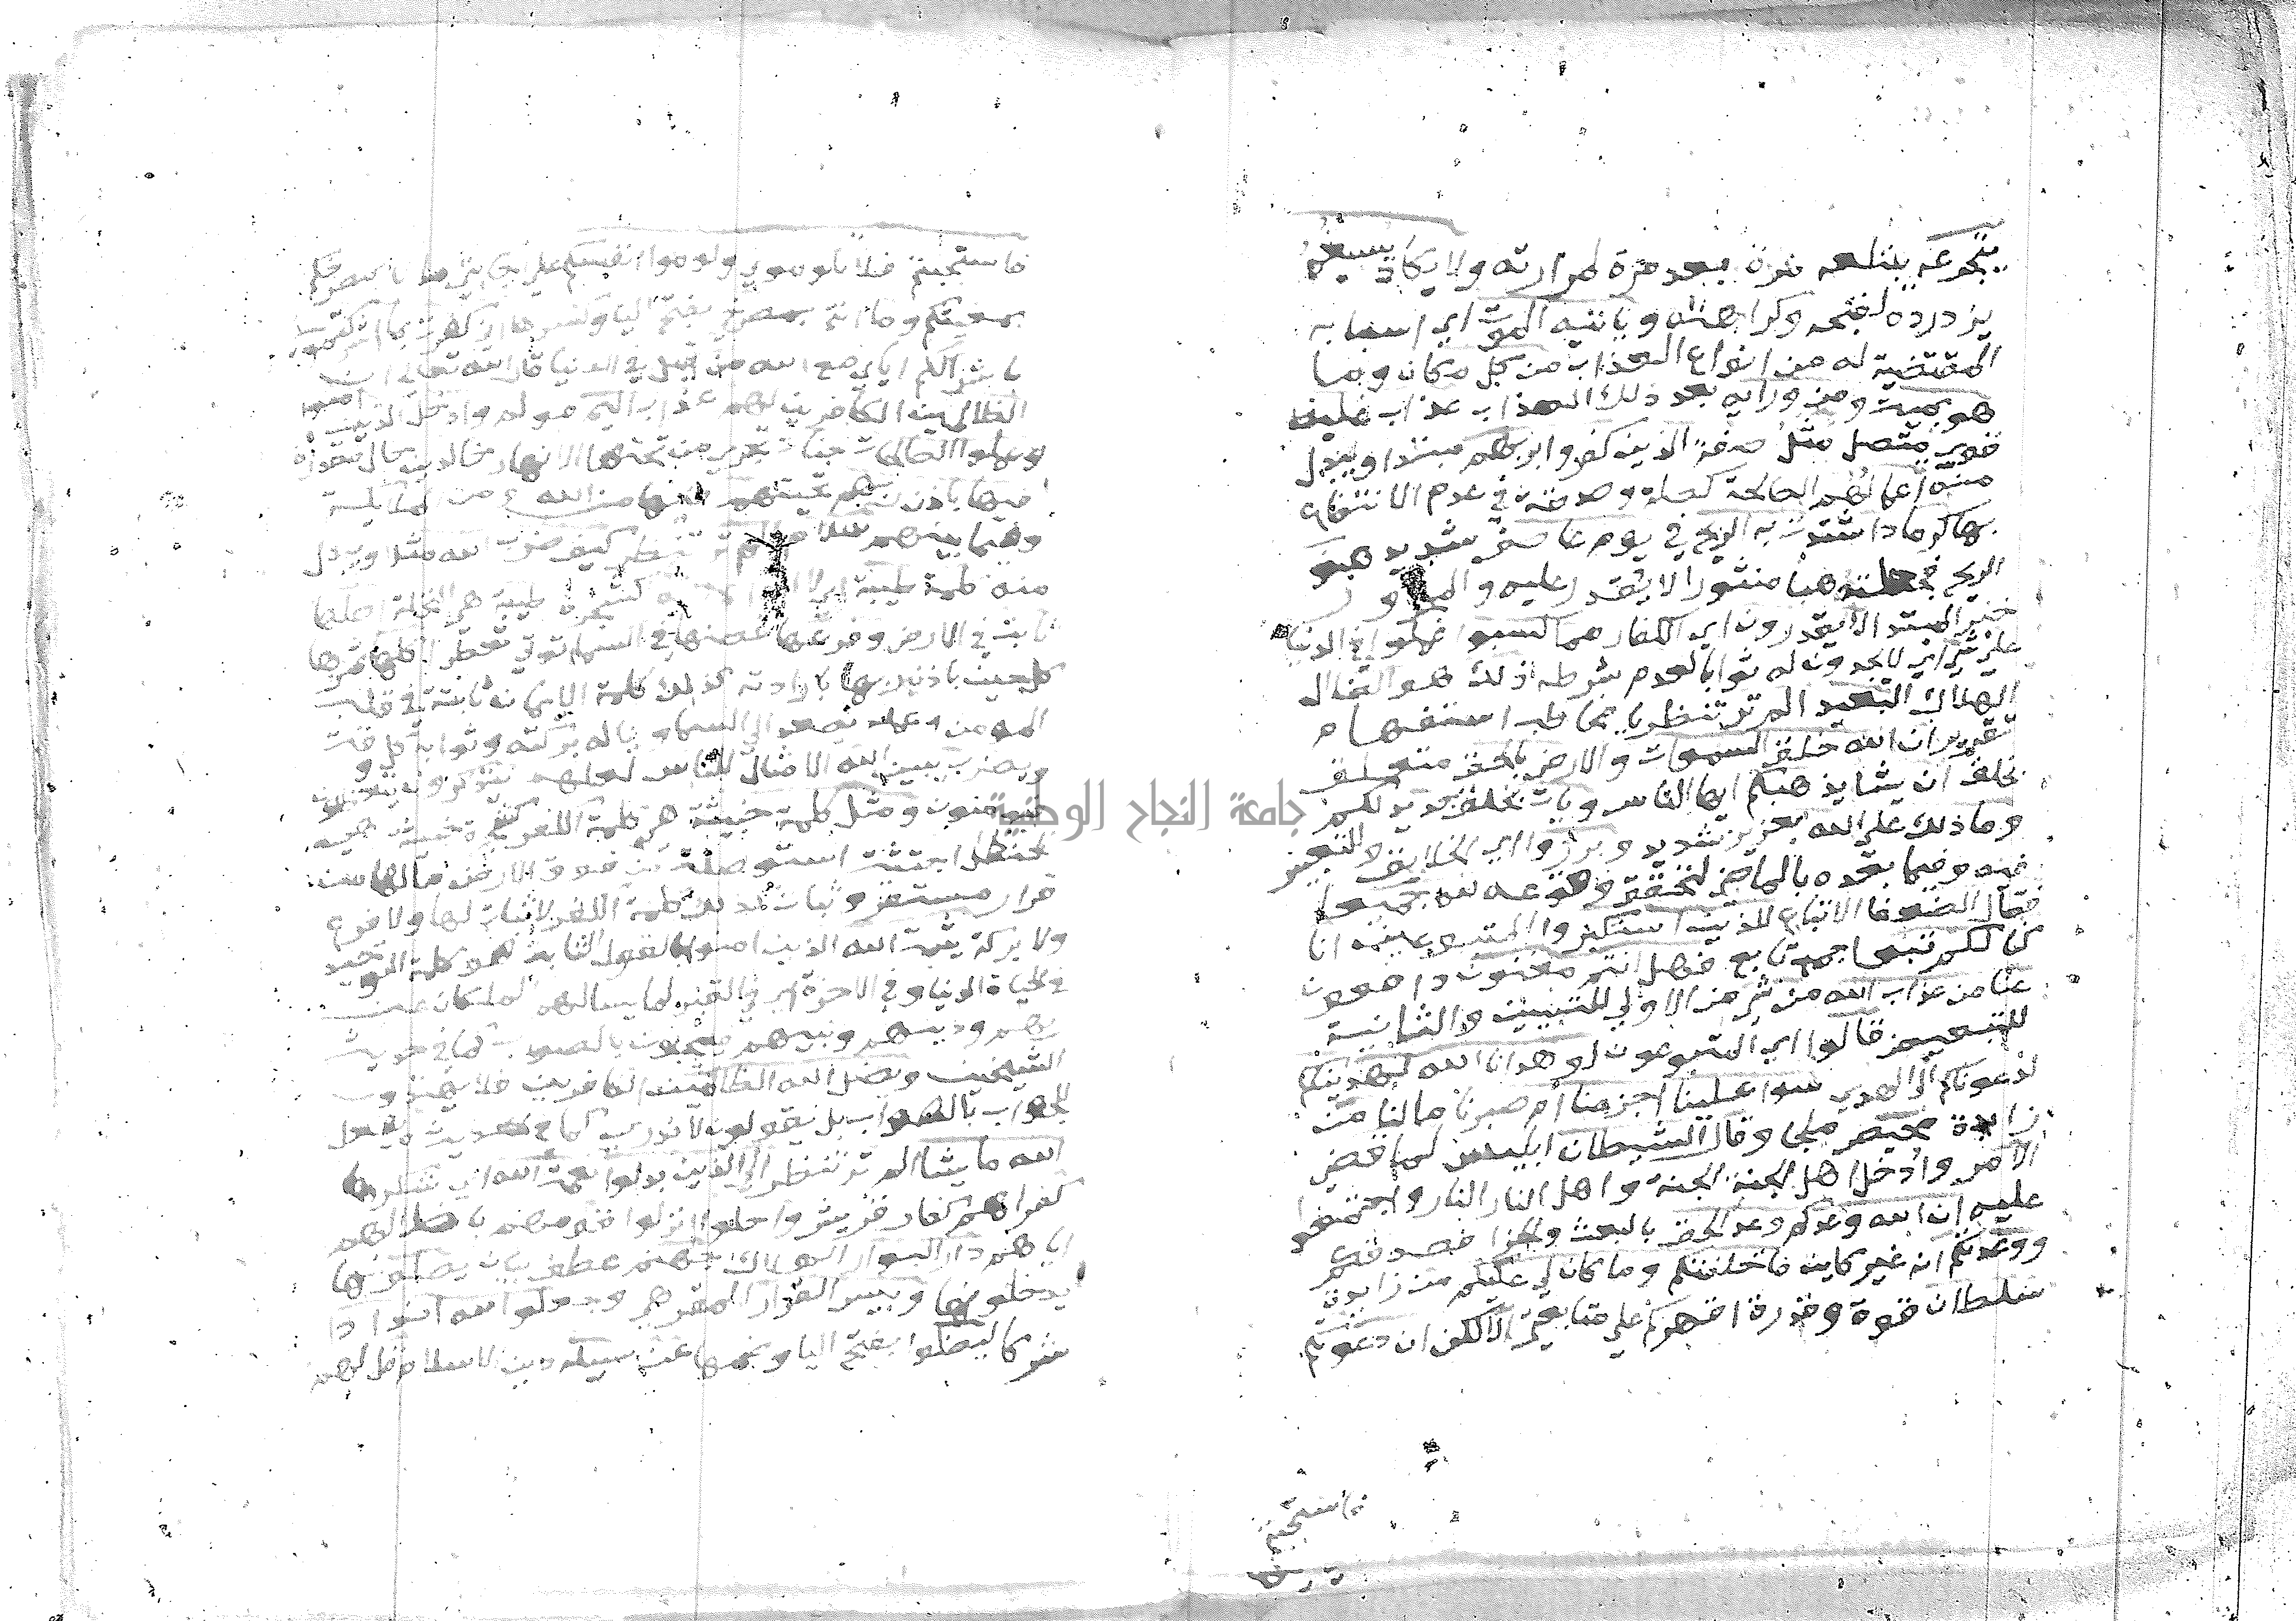 يتجرعه يبتلعه مرة بعد مرة لمرارته ولا يكاد يسيغه
يزدرده لقبحه وكراهته وياتيه الموت اي اسبابه
المقتضية له من انواع العذاب من كل مكان وما
هو بميت ومن ورايه بعد ذلك العذاب عذاب غليظ
قوي متصل مثل صفة الذين كفروا بربهم مبتدا ويبدل
منه اعمالهم الصالحة كصلة وصدقة في عدم الانتفاع
بها كرماد اشتدت به الريح في يوم عاصف شديد هبوب
الريح فجعلته هبا منثورا لا يقدر عليه والمجرور
خبر المبتدا لا يقدرون اي الكفار مما كسبوا عملوا في الدنيا
علي شي اي لا يجدون له ثوابا لعدم شرطه ذلك هو الضلال
الهلاك البعيد الم تر تنظر يا مخاطب استفهام
تقرير ان الله خلق السموات والارض بالحق متعلق
بخلق ان يشا يذهبكم ايها الناس ويات بخلق جديد لكم
وما ذلك علي الله بعزيز شديد وبرزوا اي الخلايق والتعبير
فيه وفيما بعده بالماضي لتحقق وقوعه لله جميعا
فقال الضعفا الاتباع للذين استكبروا المتبوعين انا
كنا لكم تبعا جمع تابع فهل انتم مغنون دافعون
عنا من عذاب الله من شي من الاولي للتبيين والثانية
للتبعيض قالوا اي المتبوعون لو هدانا الله لهديناكم
لدعوناكم الي الهدي سوا علينا اجزعنا ام صبرنا ما لنا من
زايدة محيص ملجا وقال الشيطان ابليس لما قضي
الامر وادخل اهل الجنة الجنة واهل النار النار واجتمعوا
عليه ان الله وعدكم وعد الحق بالبعث والجزا فصدقكم
ووعدتكم انه غير كاين فاخلفتكم وما كان لي عليكم من زايدة
سلطان قوة وقدرة اقهركم علي متابعتي الا لكن ان دعوتكم
فاستجبتم
فاستجبتم فلا تلوموني ولوموا انفسكم علي اجابتي ما انا بمصرخكم
بمغيثكم وما انتم بمصرخي بفتح اليا وكسرها اني كفرت بما اشركتمون
باشراككم اياي مع الله من قبل في الدنيا قال الله تعالي ان
الظالمين الكافرين لهم عذاب اليم مولم وادخل الذين امنوا
وعملوا الصالحات جنات تجري من تحتها الانهار خالدين حال مقدرة
فيها باذن ربهم تحيتهم فيها من الله ومن الملايكة
وفيما بينهم سلام الم تر تنظر كيف ضرب الله مثلا ويبدل
منه كلمة طيبة اي لا اله الا الله كشجرة طيبة هي النخلة اصلها
ثابت في الارض وفرعها غصنها في السما تؤتي تعطي اكلها ثمرها
كل حين باذن ربها بارادته كذلك كلمة الايمان ثابتة في قلب
المومن وعمله يصعد الي السما ويناله بركته وثوابه كل وقت
ويضرب يبين الله الامثال للناس لعلهم يتذكرون يتعظون
فيومنون ومثل كلمة خبيثة هي كلمة الكفر كشجرة خبيثة هي
الحنظل اجتثت استوصلت من فوق الارض ما لها من
قرار مستقر وثبات كذلك كلمة الكفر لا ثبات لها ولا فرع
ولا بركة يثبت الله الذين امنوا بالقول الثابت هو كلمة التوحيد
في الحياة الدنيا وفي الاخرة اي في القبر لما يسالهم الملكان عن
ربهم ودينهم ونبيهم فيجيبون بالصواب كما في حديث
الشيخين ويضل الله الظالمين الكافرين فلا يهتدون
للجواب بالصواب بل يقولون لا ندري كما في الحديث ويفعل
الله ما يشا الم تر تنظر الي الذين بدلوا نعمة الله اي شكرها
كفرا هم كفار قريش واحلوا انزلوا قومهم باضلالهم
اياهم دار البوار الهلاك جهنم عطف بيان يصلونها
يدخلونها وبيس القرار المقر هي وجعلوا لله اندادا
شركا ليضلوا بفتح اليا وضمها عن سبيله دين الاسلام قل لهم
جامعة النجاح الوطنية